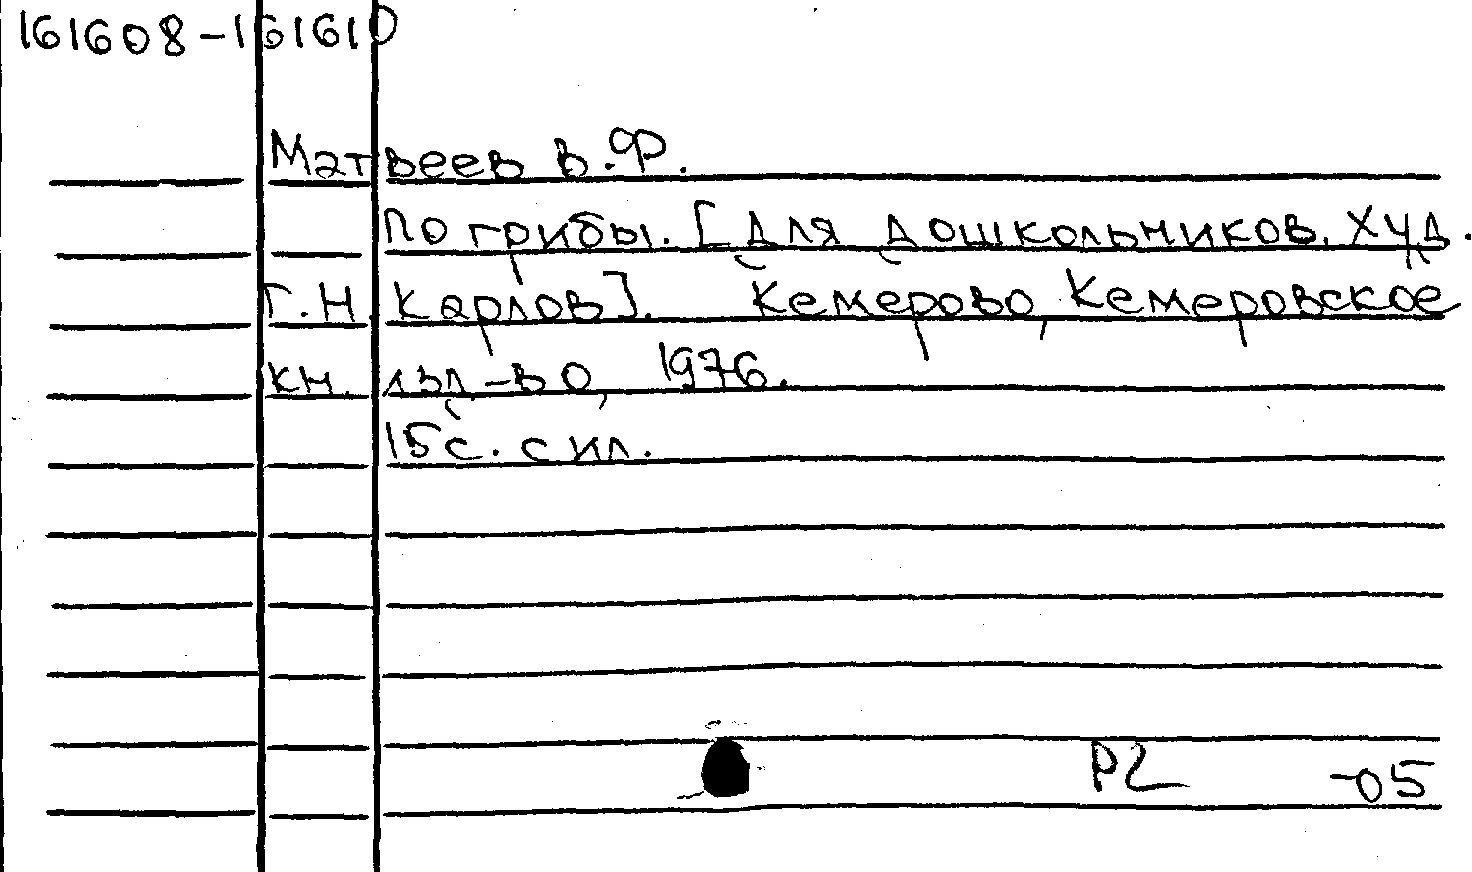 161608-161610
Матвеев В.Ф.
По грибы. [Для дошкольников. Худ.
Г.Н. Карлов]. Кемерово, Кемеровское
кн. изд-во, 1976.
15с. с ил.
Р2 -05